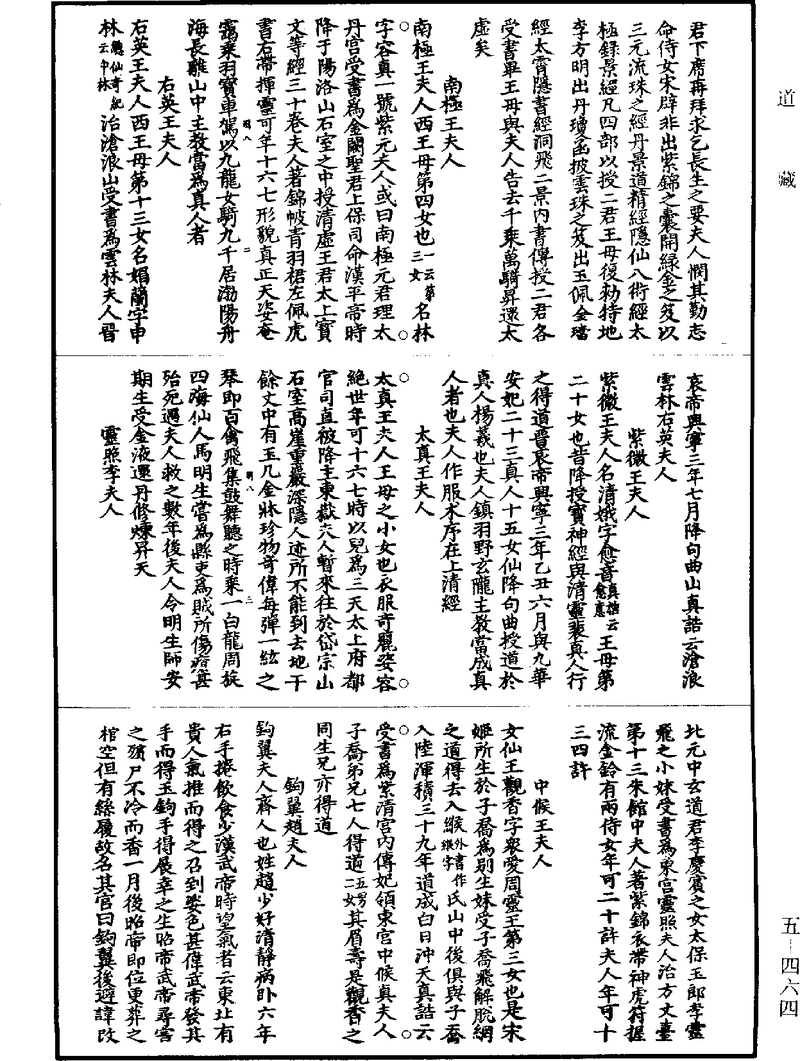 道藏
君下席再拜求乞長生之要夫人憫其勤志
命侍女宋辟非出紫錦之囊開綠金之笈以
三元流珠之經丹景道精經隱仙八術經太
極錄景經凡四部以授二君王母復勑侍女
李方明出丹瓊函披雲珠之笈出玉佩金璫
經太霄隱書經洞飛二景內書傳授二君各
受書畢王母與夫人告去千乘萬騎昇還太
虛矣
南極王夫人
南極王夫人西王母第四女也一云第三女名林
字容真一號紫元夫人或曰南極元君理太
丹宮受書為金闕聖君上保司命漢平帝時
降于陽洛山石室之中授清虛王君太上寶
文等經三十卷夫人著錦帔青羽裙左佩虎
書右帶揮靈可年十六七形貌真正天姿奄
藹乘羽寶車駕以九龍女騎九千居渤陽丹
海長離山中主教當為真人者
右英王夫人
右英王夫人西王母第十三女名媚蘭字申
林集仙奇紀云中林治滄浪山受書為雲林夫人晉
哀帝興寧三年七月降句曲山真誥云滄浪
雲林右英夫人
紫微王夫人
紫微王夫人名清娥字愈音真誥云愈意王母第
二十女也昔降授寶神經與清靈裴真人行
之得道晉哀帝興寧三年乙丑六月與九華
安妃二十三真人十五女仙降句曲授道於
真人楊羲也夫人鎮羽野玄隴主教當成真
人者也夫人作服术序在上清經
太真王夫人
太真王夫人王母之小女也衣服奇麗姿容
絕世年可十六七時以兒為三天太上府都
官司直被降主東嶽夫人暫來往於岱宗山
石室高崖重巖深隱人迹所不能到去地千
餘丈中有玉几金牀珍物奇偉每彈一絃之
琴即百禽飛集鼓舞聽之時乘一白龍周旋
四海仙人馬明生當為縣吏為賊所傷瘡甚
殆死遇夫人救之數年後夫人令明生師安
期生受金液還丹修煉昇天
靈照李夫人
北元中玄道君李慶賓之女太保玉郎李靈
飛之小妹受書為東宮靈照夫人治方丈臺
第十三朱館中夫人著紫錦衣帶神虎符握
流金鈴有兩侍女年可二十許夫人年可十
三四許
中候王夫人
女仙王觀香字眾愛周靈王第三女也是宋
姬所生於子喬為別生妹受子喬飛解脫網
之道得去入緱外書作猴字氏山中後俱與子喬
入陸渾積三十九年道成白日沖天真誥云
受書為紫清宮內傳妃領東宮中候真夫人
子喬弟兄七人得道五男二女其眉壽是觀香之
同生兄亦得道
鉤翼趙夫人
鉤翼夫人齊人也姓趙少好清靜病臥六年
右手捲飲食少漢武帝時望氣者云東北有
貴人氣推而得之召到姿色甚偉武帝發其
手而得玉鉤手得展幸之生昭帝武帝尋害
之殯尸不冷而香一月後昭帝即位更葬之
棺空但有絲履故名其宮曰鉤翼後避諱改
五-四六四